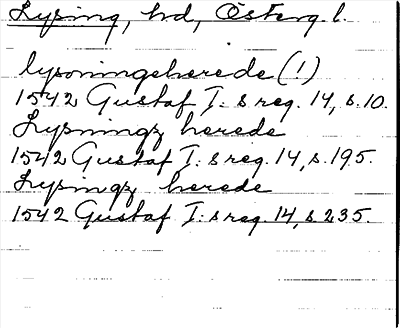 Lysing, hd, Österg. l.
lysoningeherede (!)
1542 Gustaf I: s reg. 14, s. 10.
Lysningz herede
1542 Gustaf I: s reg. 14, s. 195.
Lysingz herede
1542 Gustaf I: s reg. 14, s. 235.